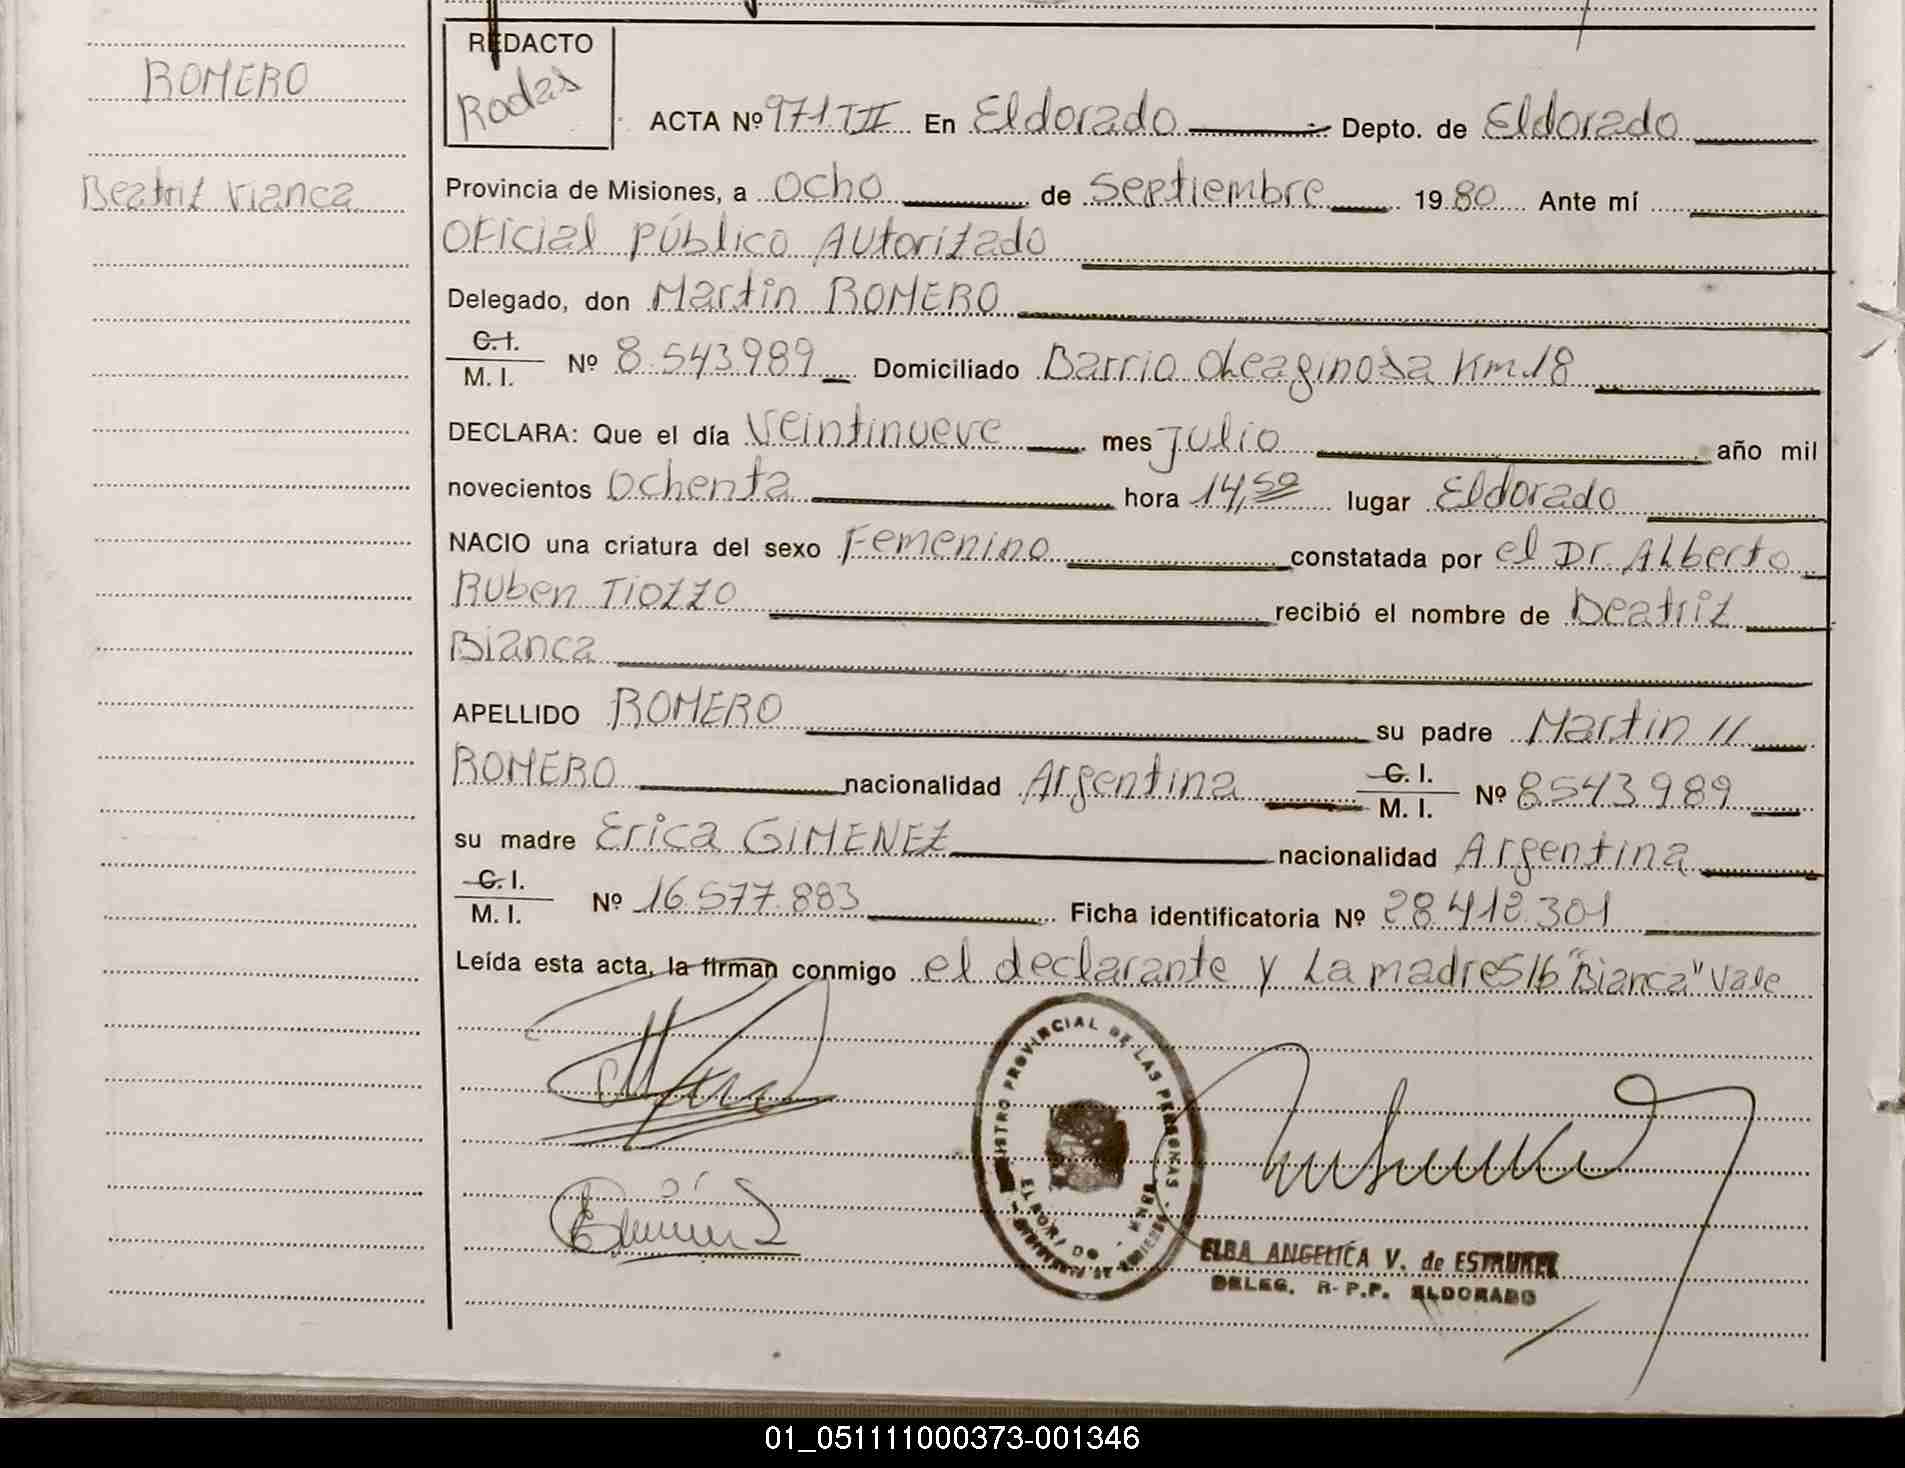 ROMERO
Beatriz Vianca
REDACTO
Rodas
ACTA Nº 971.TII En Eldorado Depto. de Eldorado
Provincia de Misiones, a Ocho de Septiembre 1980 Ante mí
Oficial Público Autorizado
Delegado, don Martin ROMERO
C.I.
M. I. Nº 8.543989 Domiciliado Barrio Oleaginosa Km.18
DECLARA: Que el día Veintinueve mes Julio año mil
novecientos Ochenta hora 14,50 lugar Eldorado
NACIO una criatura del sexo Femenino constatada por el Dr. Alberto
Ruben Tiozzo recibió el nombre de Beatriz
Bianca
APELLIDO ROMERO su padre Martin //
ROMERO nacionalidad Argentina C. I.
M. I. Nº 8543989
su madre Erica GIMENEZ nacionalidad Argentina
C. I.
M. I. Nº 16.577.883 Ficha identificatoria Nº 28.412.301
Leída esta acta, la firman conmigo el declarante y La madre S/b "Bianca" Vale
REGISTRO PROVINCIAL DE LAS PERSONAS
ELDORADO
ELBA ANGELICA V. de ESTRUKEL
DELEG. R.P.P. ELDORADO
01_051111000373-001346